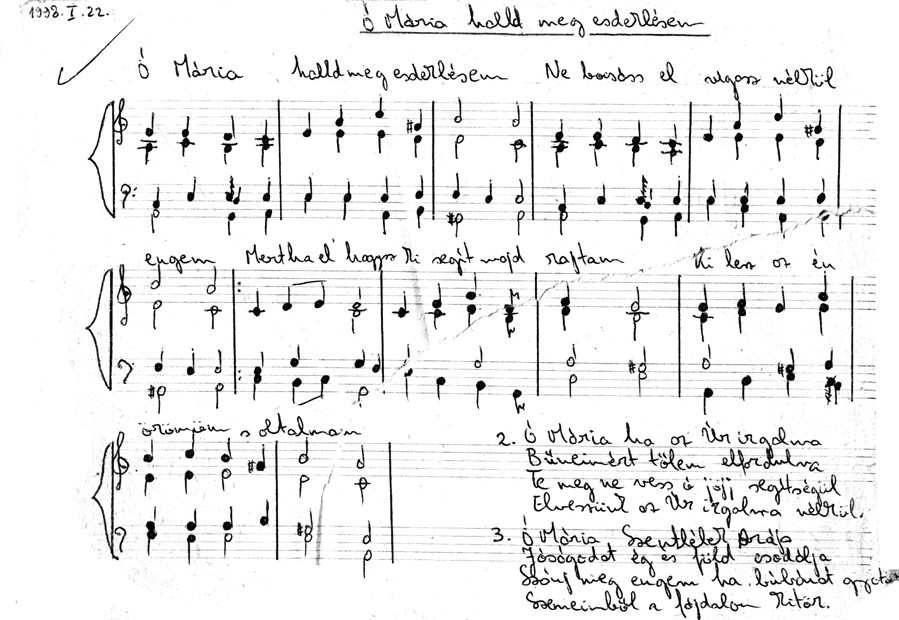 1998. I. 22.
Ó Mária halld meg esdeklésem
Ó Mária halld meg esdeklésem Ne bocsáss el vigasz nélkül
engem Mert ha el hagysz ki segít majd rajtam Ki lesz az én
örömöm s oltalmam
2. Ó Mária ha az Úr irgalma
Bűneimért tőlem elfordulva
Te meg ne vess ó jöjj segítségül
Elvesszünk az Úr irgalma nélkül.
3. Ó Mária Szentlélek Arája
Jóságodat ég és föld csodálja
Szánj meg engem ha búbánat
Szemeimből a fájdalom kitör.